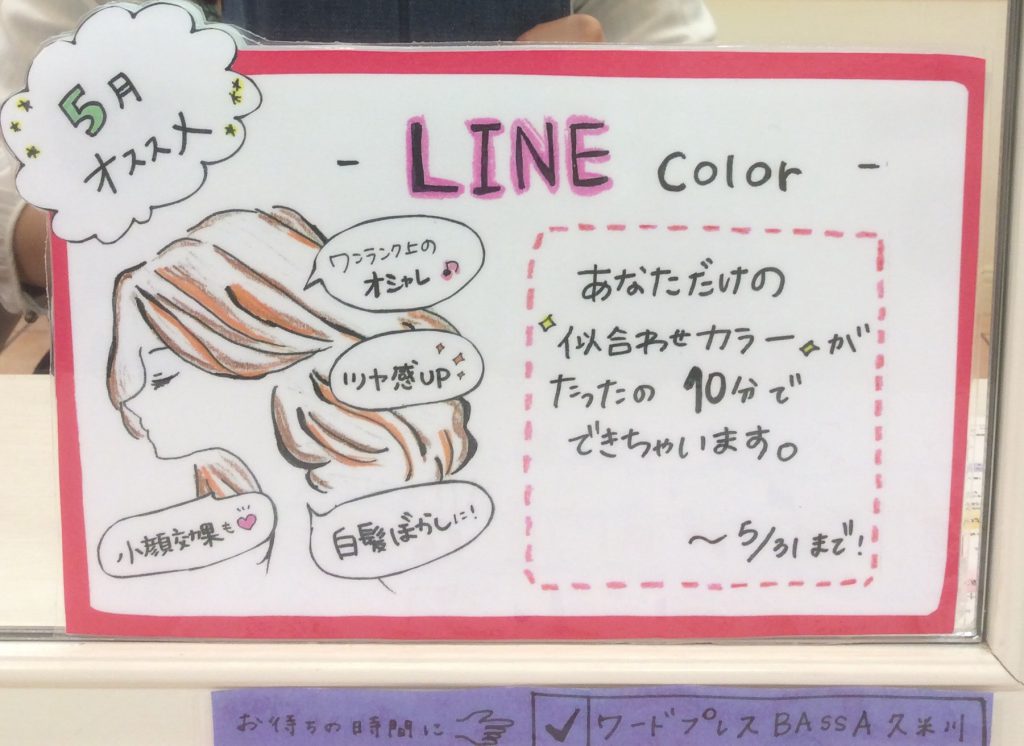 5月
オススメ
- LINE color -
ワンランク上の
オシャレ♪
ツヤ感UP
小顔効果も♡
白髪ぼかしに!
あなただけの
似合わせカラーが
たったの 10分で
できちゃいます。
～5/31まで!
お待ちの時間に
✓ ワードプレス BASSA 久米川